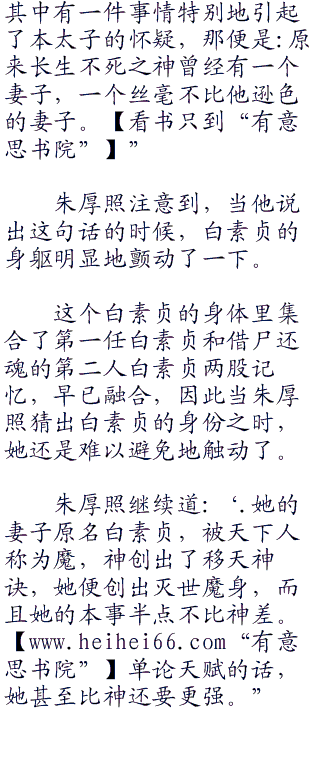 其中有一件事情特别地引起
了本太子的怀疑，那便是:原
来长生不死之神曾经有一个
妻子，一个丝毫不比他逊色
的妻子。【看书只到“有意
思书院”】”
朱厚照注意到，当他说
出这句话的时候，白素贞的
身躯明显地颤动了一下。
这个白素贞的身体里集
合了第一任白素贞和借尸还
魂的第二人白素贞两股记
忆，早已融合，因此当朱厚
照猜出白素贞的身份之时，
她还是难以避免地触动了。
朱厚照继续道：‘.她的
妻子原名白素贞，被天下人
称为魔，神创出了移天神
诀，她便创出灭世魔身，而
且她的本事半点不比神差。
【www.heihei66.com“有意
思书院”】单论天赋的话，
她甚至比神还要更强。”